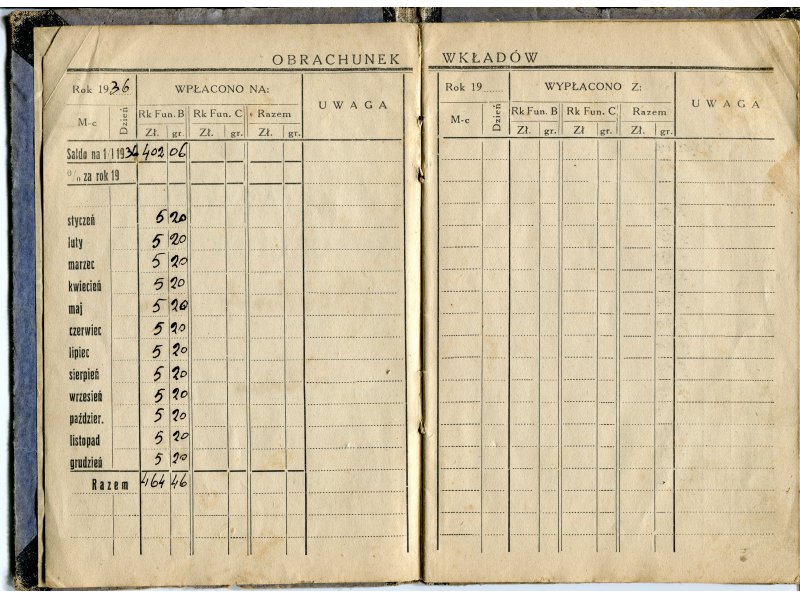 OBRACHUNEK WKŁADÓW
Rok 1936 WPŁACONO NA: UWAGA
M-c Dzień Rk Fun. B Rk Fun. C Razem
Zł. gr. Zł. gr. Zł. gr.
Saldo na 1/I 1936 402 06
% za rok 19
styczeń 5 20
luty 5 20
marzec 5 20
kwiecień 5 20
maj 5 20
czerwiec 5 20
lipiec 5 20
sierpień 5 20
wrzesień 5 20
paździer. 5 20
listopad 5 20
grudzień 5 20
Razem 464 46
Rok 19...... WYPŁACONO Z: UWAGA
M-c Dzień Rk Fun. B Rk Fun. C Razem
Zł. gr. Zł gr. Zł. gr.